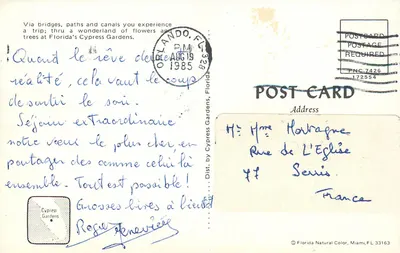 Via bridges, paths and canals you experience
a trip; thru a wonderland of flowers and
trees at Florida's Cypress Gardens.
Quand le rêve devient
réalité, cela vaut le coup
de sortir le soir.
Séjour extraordinaire
notre vœu le plus cher en
partager des comme celui là
ensemble. Tout est possible!
Grosses bises à
Roger Geneviève
Cypress
Gardens
Dist. by Cypress Gardens, Florida
ORLANDO, FL 328
PM
AUG 19
1985
POSTCARD
POSTAGE
REQUIRED
PNC 7426
172554
POST CARD
Address
Mr Mme Mortagne
Rue de L'Eglise
77 Serris
France
© Florida Natural Color, Miami, FL 33163